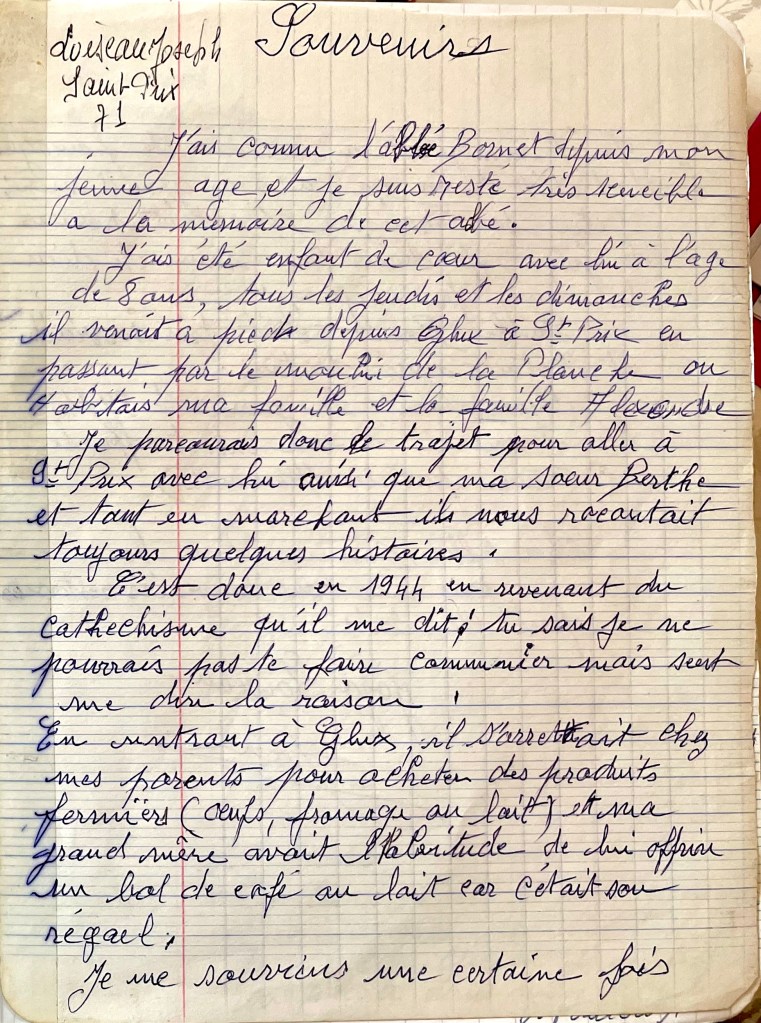 Loiseau Joseph
Souvenirs
Saint-Prix
71
J'ais connu l'abbé Bornet depuis mon
jeune age, et je suis resté très sencible
a la memoire de cet abbé.
J'ais été enfant de cœur avec lui à l'age
de 8 ans, tous les jeudis et les dimanches
il venait à pieds depuis Glux à St Prix en
passant par le moulin de la Planche ou
habitais ma famille et la famille Alexandre
Je parcourais donc le trajet pour aller à
St Prix avec lui ainsi que ma soeur Berthe
et tout en marchant ils nous racontait
toujours quelques histoires.
C'est donc en 1944 en revenant du
cathechisme qu'il me dit; tu sais je ne
pourrais pas te faire communier mais sent
me dire la raison!
En rentrant à Glux, il s'arrettait chez
mes parents pour acheter des produits
fermiers (oeufs, fromage ou lait) et ma
grand mère avait l'habitude de lui offrir
un bol de café au lait car c'était son
régael,
Je me souviens une certaine fois